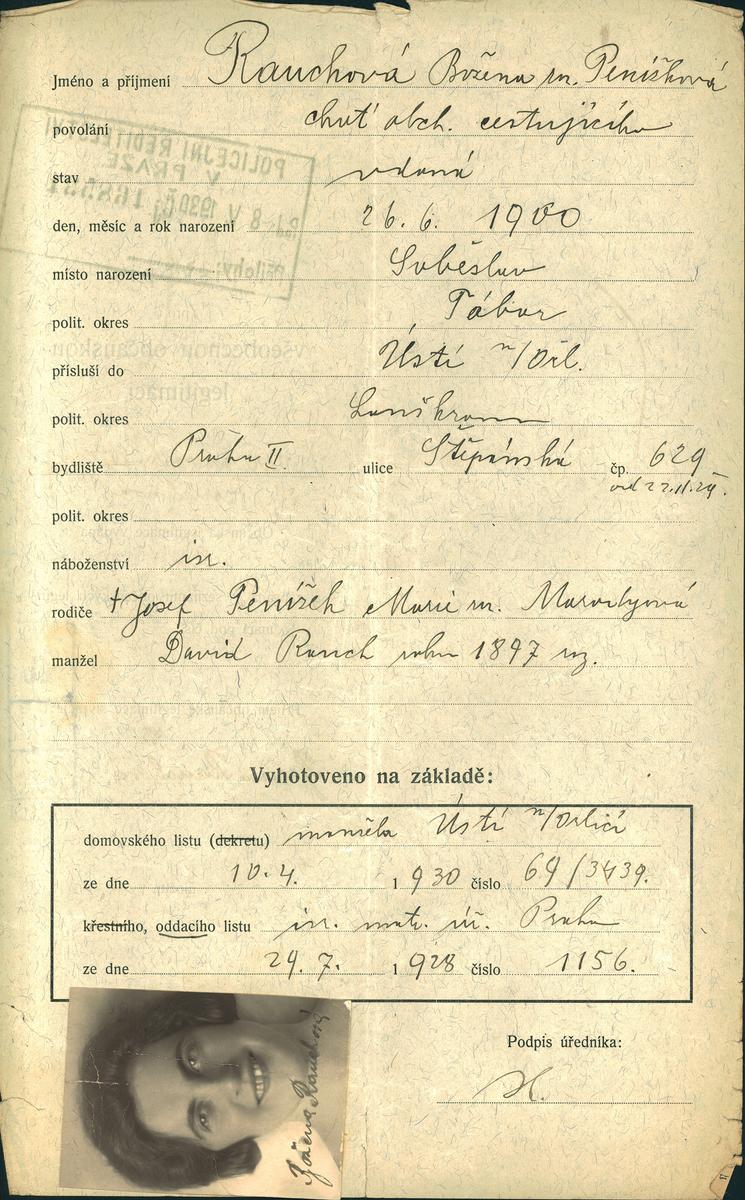 Jméno a příjmení Rauchová Božena r. Peníšková
povolání choť obch. cestujícího
stav vdaná
den, měsíc a rok narození 26. 6. 1900
místo narození Soběslav
polit. okres Tábor
přísluší do Ústí n/Orl.
polit. okres Lanškroun
bydliště Praha II. ulice Štěpánská čp. 629
od 22.11.29.
polit. okres
náboženství isr.
rodiče † Josef Peníšek Marie r.
manžel David Rauch roku 1897 nz.
Vyhotoveno na základě:
domovského listu (dekretu) manžela Ústí n/Orlicí
ze dne 10.4. 1930 číslo 69/3439.
křestního, oddacího listu isr. matr. úř. Praha
ze dne 24.7. 1928 číslo 1156.
Podpis úředníka:
Božena Rauchová
POLICEJNÍ ŘEDITELSTVÍ
V PRAZE
8 V 1930
Přílohy:
všeobecnou občanskou
legitimaci